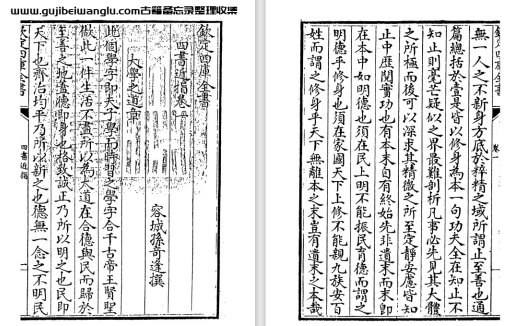 www.gujibeiwanglu.com古籍备忘录整理收集
欽定四庫全書
四書近指卷一
容城孫奇逢撰
大學之道章
此個學字即夫子學而時習之學字合千古帝王賢聖
做此一件生活不盡所以為大道在合德與民而歸於
至善之地蓋德即身也格致誠正乃所以明之也民即
天下也齊治均平乃所以新之也德無一念之不明民
欽定四庫全書
四書近指
無一人之不新身方底於粹精之域所謂止至善也通
篇總括於壹是皆以修身為本一句功夫全在知止不
知止則毫芒疑似之界最難剖析凡事必先見其大體
之所極而後可以深求其精微之所至定靜安慮皆知
止中歷閱實功也有本末自有終始先非遺末而末即
在本中如明德也須在民上明不能振民育德而謂之
明德乎修身也須在家國天下上修不能親九族安百
姓而謂之修身乎天下無離本之末豈有遺末之本哉
欽定四庫全書
卷一